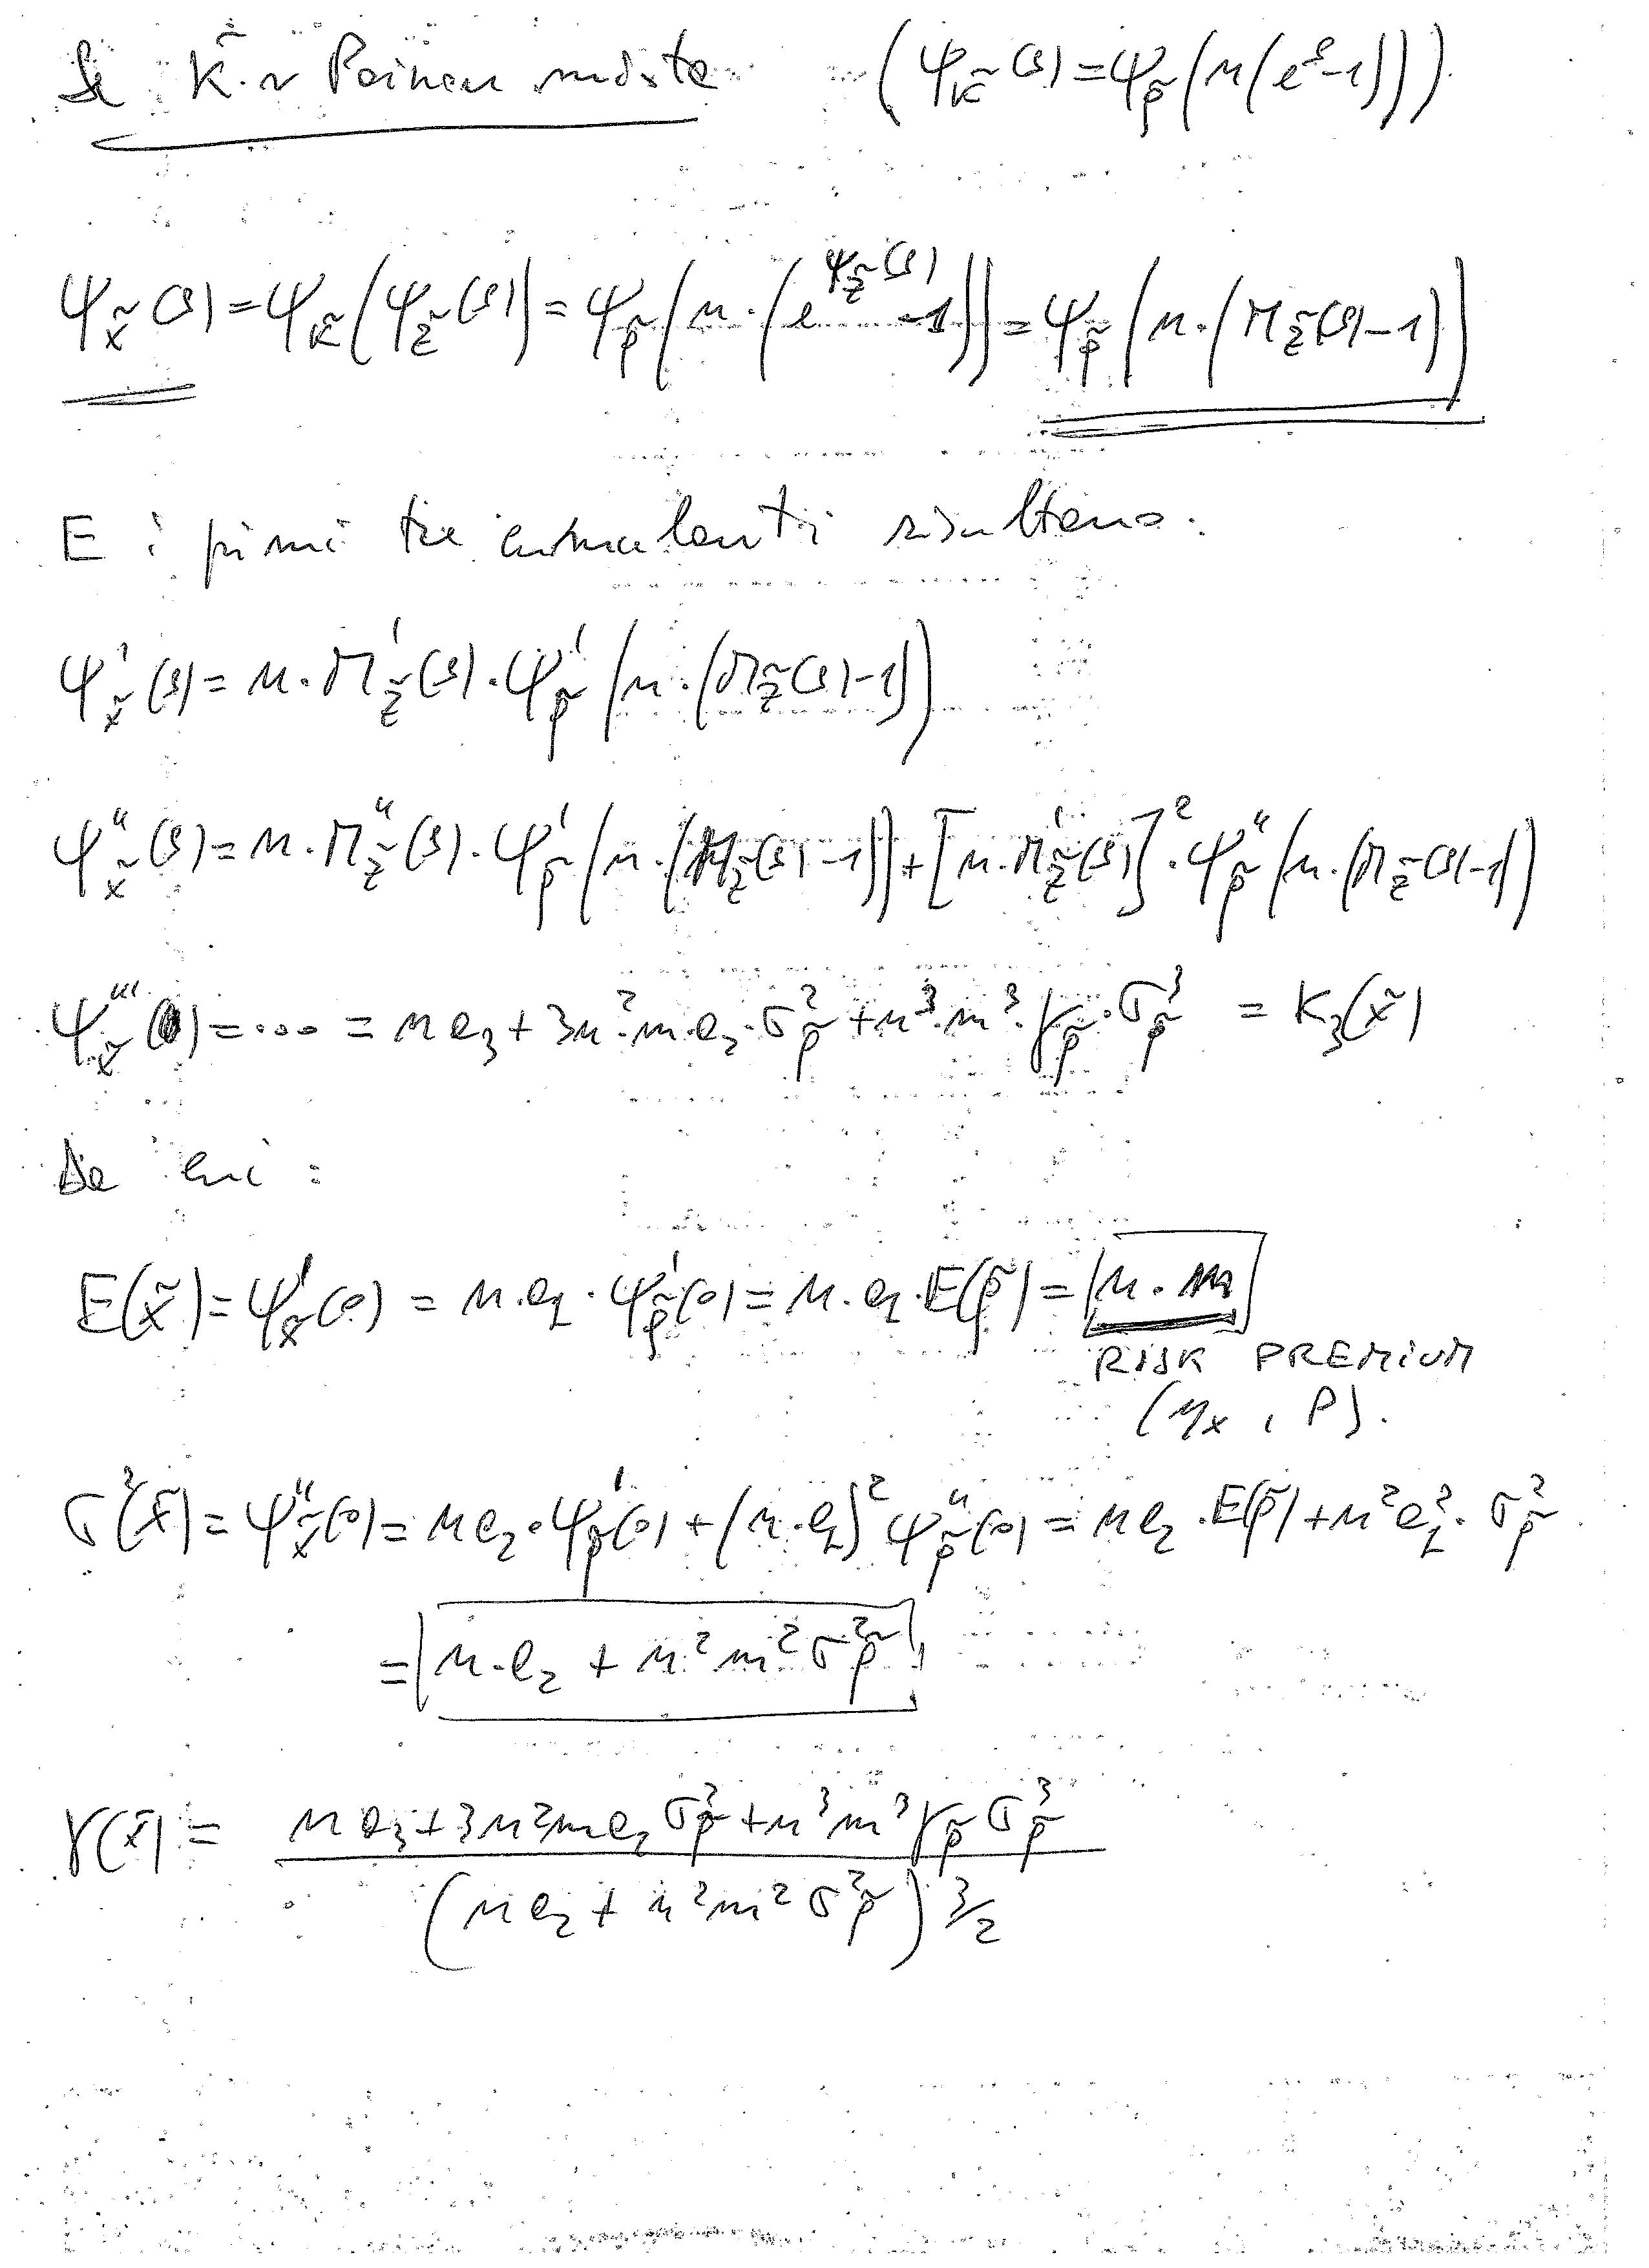 Se K̃ ~ Poisson mista (ψ_K̃(s) = ψ_p̃(n(e^s-1)))
ψ_x̃(s) = ψ_K̃(ψ_z̃(s)) = ψ_p̃(n·(e^{ψ_z̃(s)}-1)) = ψ_p̃(n·(M_z̃(s)-1))
E i primi tre cumulanti risultano:
ψ'_x̃(s) = n·M'_z̃(s)·ψ'_p̃(n·(M_z̃(s)-1))
ψ''_x̃(s) = n·M''_z̃(s)·ψ'_p̃(n·(M_z̃(s)-1)) + [n·M'_z̃(s)]²·ψ''_p̃(n·(M_z̃(s)-1))
ψ'''_x̃(0) = ... = n a₃ + 3n²·m·a₂·σ²_p̃ + n³·m³·γ_p̃·σ³_p̃ = K₃(x̃)
Da cui:
E(x̃) = ψ'_x̃(0) = n·a₁·ψ'_p̃(0) = n·a₁·E(p̃) = n·m
RISK PREMIUM
(μ_x, P).
σ²(x̃) = ψ''_x̃(0) = n a₂·ψ'_p̃(0) + (n·a₁)² ψ''_p̃(0) = n a₂·E(p̃) + n² a₁²·σ²_p̃
= n·a₂ + n² m² σ²_p̃
γ(x̃) = n a₃ + 3n² m a₂ σ²_p̃ + n³ m³ γ_p̃ σ³_p̃
(n a₂ + n² m² σ²_p̃)^{3/2}